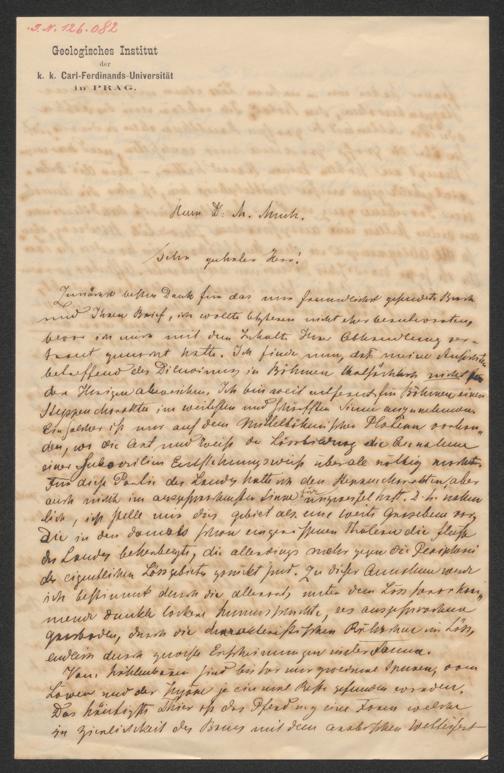 J. N. 126.082
Geologisches Institut
der
k. k. Carl-Ferdinands-Universität
in PRAG.
Herrn Dr. M. Much.
Sehr geehrter Herr!
Zunächst besten Dank für das mir freundlichst gesendete Buch
und Ihren Brief, ich wollte letzteren nicht eher beantworten,
bevor ich mich mit dem Inhalte Ihrer Abhandlung ver-
traut gemacht hatte. Ich finde nun, daß meine Ansichten
betreffend des Diluviums in Böhmen thatsächlich nicht
den Ihrigen abweichen. Ich bin weit entfernt für Böhmen einen
Steppencharakter im weitesten und schärfsten Sinne anzunehmen
Ein solcher ist nur auf dem Plateau vorhan-
den, wo die Art und Weise der die Annahme
einer Entstehungsweise überall nöthig macht.
Für diese Partie des Landes hatte ich den Steppencharakter, aber
auch nicht im Sinne für unzweifelhaft.
lich, ich stelle mir das Gebiet als eine weite Grasebene vor
Die in den damals schon eingerissenen Thälern die Flüsse
des Landes, die allerdings mehr gegen die Peripherie
des eigentlichen Lössgebietes gerückt sind. Zu dieser Annahme werde
ich bestimmt durch die allerorts unter dem Löss vorkom-
mende dunkle lockere Humusschichte, des ausgesprochenen
Grasbodens, durch die charakteristischen im Löss,
endlich durch gewisse Erscheinungen in der Fauna.
Von Höhlenbären sind bisher nur geringe Spuren, vom
Löwen und der Hyäne je ein mal Reste gefunden worden.
Das häufigste Thier ist das Pferd eine Form welche
in Zierlichkeit des Baues mit dem arabischen wetteifert